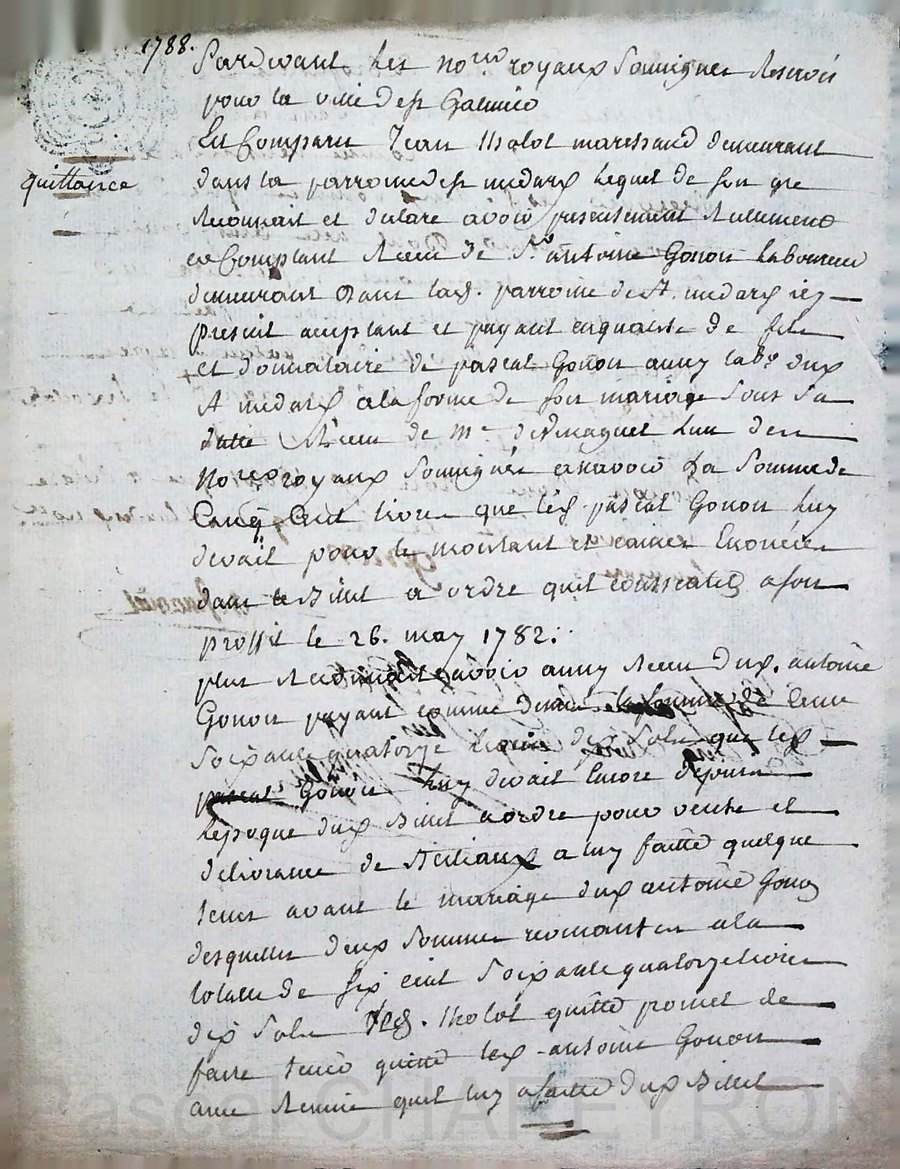 1788.
Pardevant les no.res royaux soussignés réservés
pour la ville de st Galmier
quittance
Est Comparu Jean Tholot marchand demeurant
dans la parroisse de st medard lequel de son gre
Reconnait et declare avoir presentement Reellement
et Comptant Receu de Sr. antoine Gonon laboureur
demeurant dans lad. parroisse de st. medard icy
present acceptant et payant en qualité de fils
et donnataire de pascal Gonon aussy labr. dud
st medard a la forme de son mariage sous sa
datte Receu de me. lun des
No.res royaux soussignés scavoir la somme de
Cinq Cent livres que led pascal Gonon luy
devait pour le montant et causes Enoncées
dans le Billet a ordre quil a son
proffit le 26. may 1782.
plus Reconnait avoir aussy Receu dud. antoine
Gonon payant comme dessus la somme de Cent
soixante quatorze livres dix sols que led
pascal Gonon luy devait Encore depuis
lepoque dud Billet a ordre pour vente et
delivrance de a luy faitte quelque
tems avant le mariage dud antoine Gonon
desquelles deux sommes a la
totalle de six cent soixante quatorze livres
dix sols led. Tholot quitte promet de
faire tenir quitte led antoine Gonon
avec Remise quil luy a faitte dud Billet
Pascal CHAPEYRON